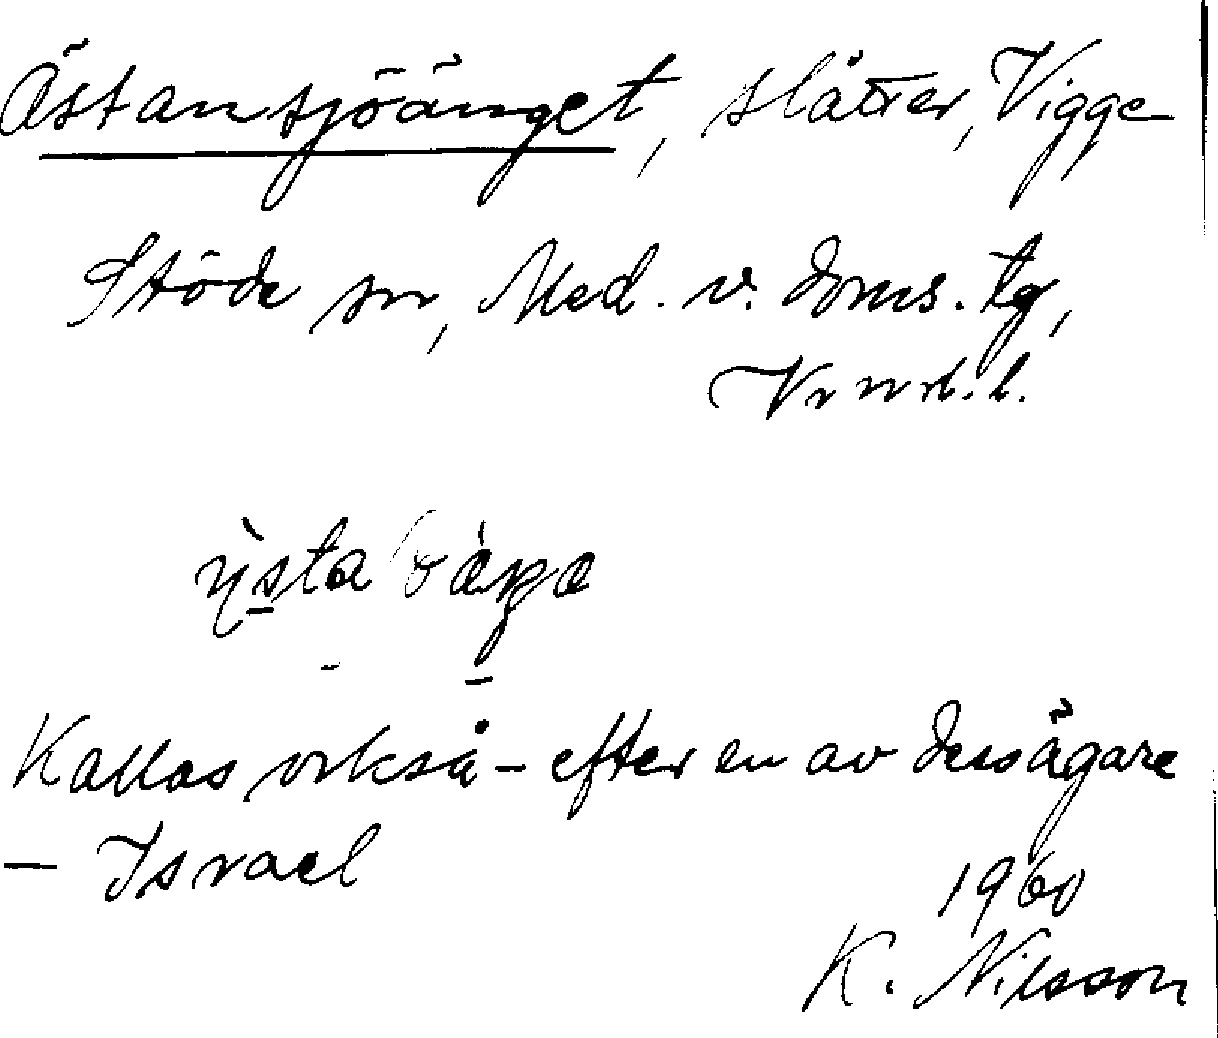 Östansjöänget, slåtter, Vigge
Stöde sn, Med. v. doms. tg,
Vnrl. l.
Kallas också – efter en av dess ägare
– Israel
1960
K. Nilsson